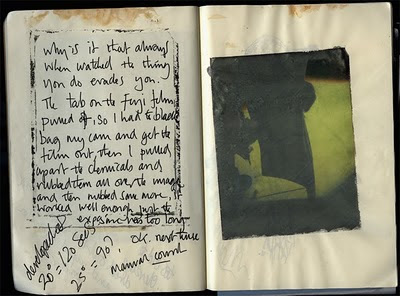 why is it that always
when watched the thing
you do evades you.
The tab on the Fuji film
pulled off, so I had to black
bag my cam and get the
film out, then I pulled
apart the chemicals and
rubbed them all on, the image
and then rubbed some more, it
worked well enough but the
exposure was too long
developed at
20° = 120 secs
25° = 90?
OK. next time
manual control